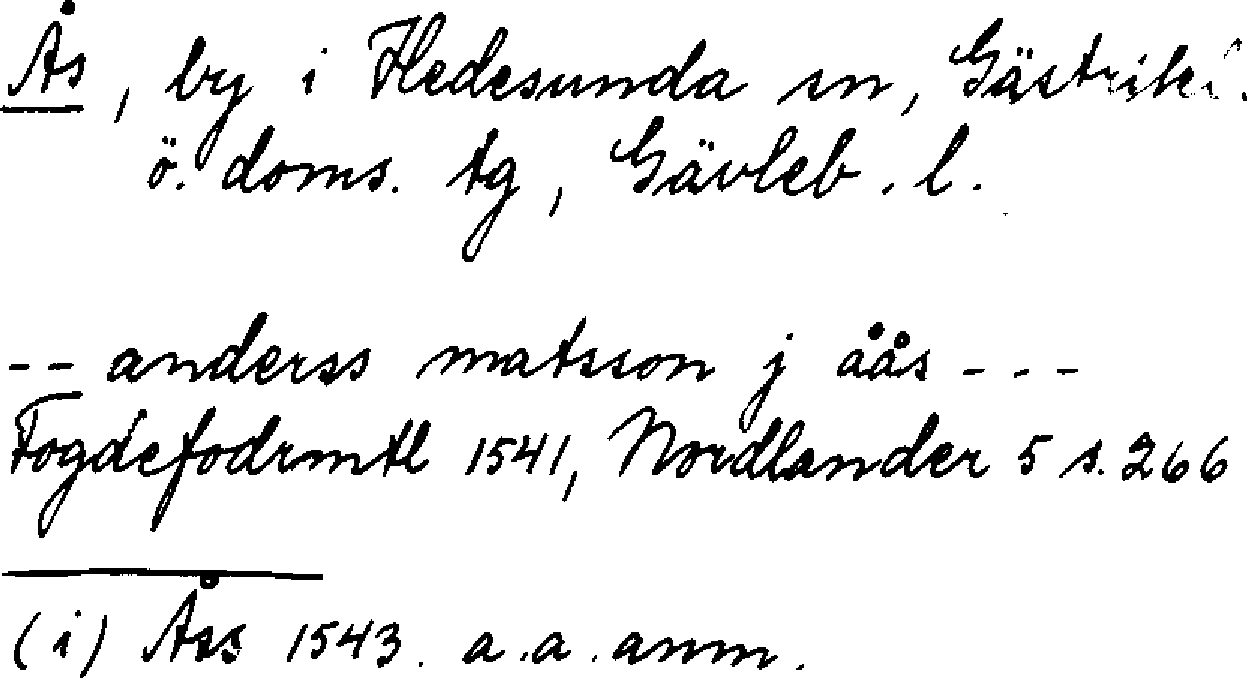 Ås, by i Hedesunda sn, Gästrikl.
ö. doms. tg, Gävleb. l.
-- anderss matsson j åås ---
Fogdefodrmtl 1541, Nordlander 5 s. 266
(i) Åss 1543. a.a. anm.